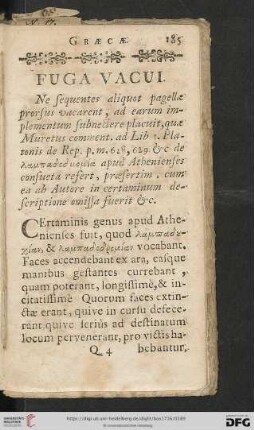 GRÆCÆ 185
FUGA VACUI.
Ne sequentes aliquot pagellæ
prorsus vacarent, ad earum im-
plementum subnectere placuit, quæ
Muretus comment. ad Lib 1. Pla-
tonis de Rep. p.m. 628, 629 &c de
λαμπαδοδρομία apud Athenienses
consueta refert, præsertim, cum
ea ab Autore in certaminum de-
scriptione omissa fuerit &c.
CErtaminis genus apud Athe-
nienses fuit, quod
& λαμπαδοδρομίαν vocabant.
Faces accendebant ex ara, easque
manibus gestantes currebant,
quam poterant, longissimè, & in-
citatissimè Quorum faces extin-
ctæ erant, quive in cursu defece-
rant quive serius ad destinatum
locum pervenerant, pro victis ha-
Q 4 bebantur,
UNIVERSITÄTS-
BIBLIOTHEK
HEIDELBERG
Gefördert durch die
DFG